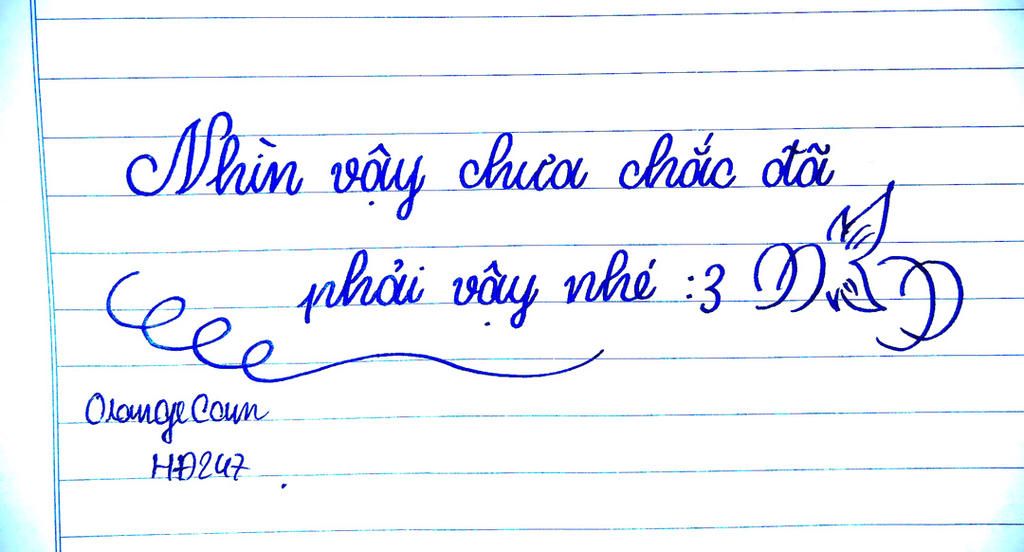 Nhìn vậy chưa chắc đã
phải vậy nhé :3
HĐ247